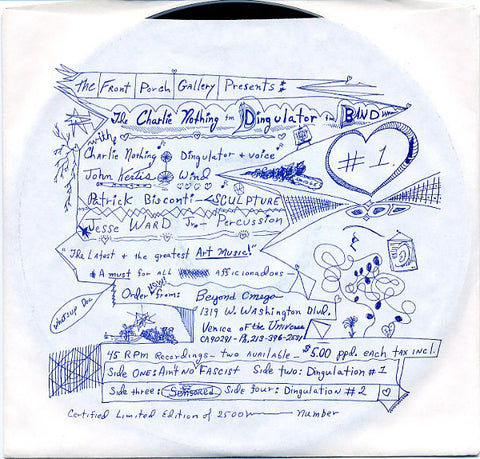 The Front Porch Gallery Presents:
The Charlie Nothing tm Dingulator tm BAND
with:
Charlie Nothing Dingulator + voice
#1
John Kertis Wind
Patrick Bisconti - SCULPTURE
Jesse WARD Jr. - Percussion
"The Latest + the greatest Art Music!"
* A must for all afficionadoes -
Order now from: Beyond Omega
1319 W. Washington Blvd.
Venice of the Universe
What's up Doc
CA 90291 - 213-396-2531
45 RPM Recordings - two available - $5.00 ppd. each tax incl.
Side ONE: Ain't No Fascist Side two: Dingulation #1
Side three: Side four: Dingulation #2
Certified Limited Edition of 2500 number